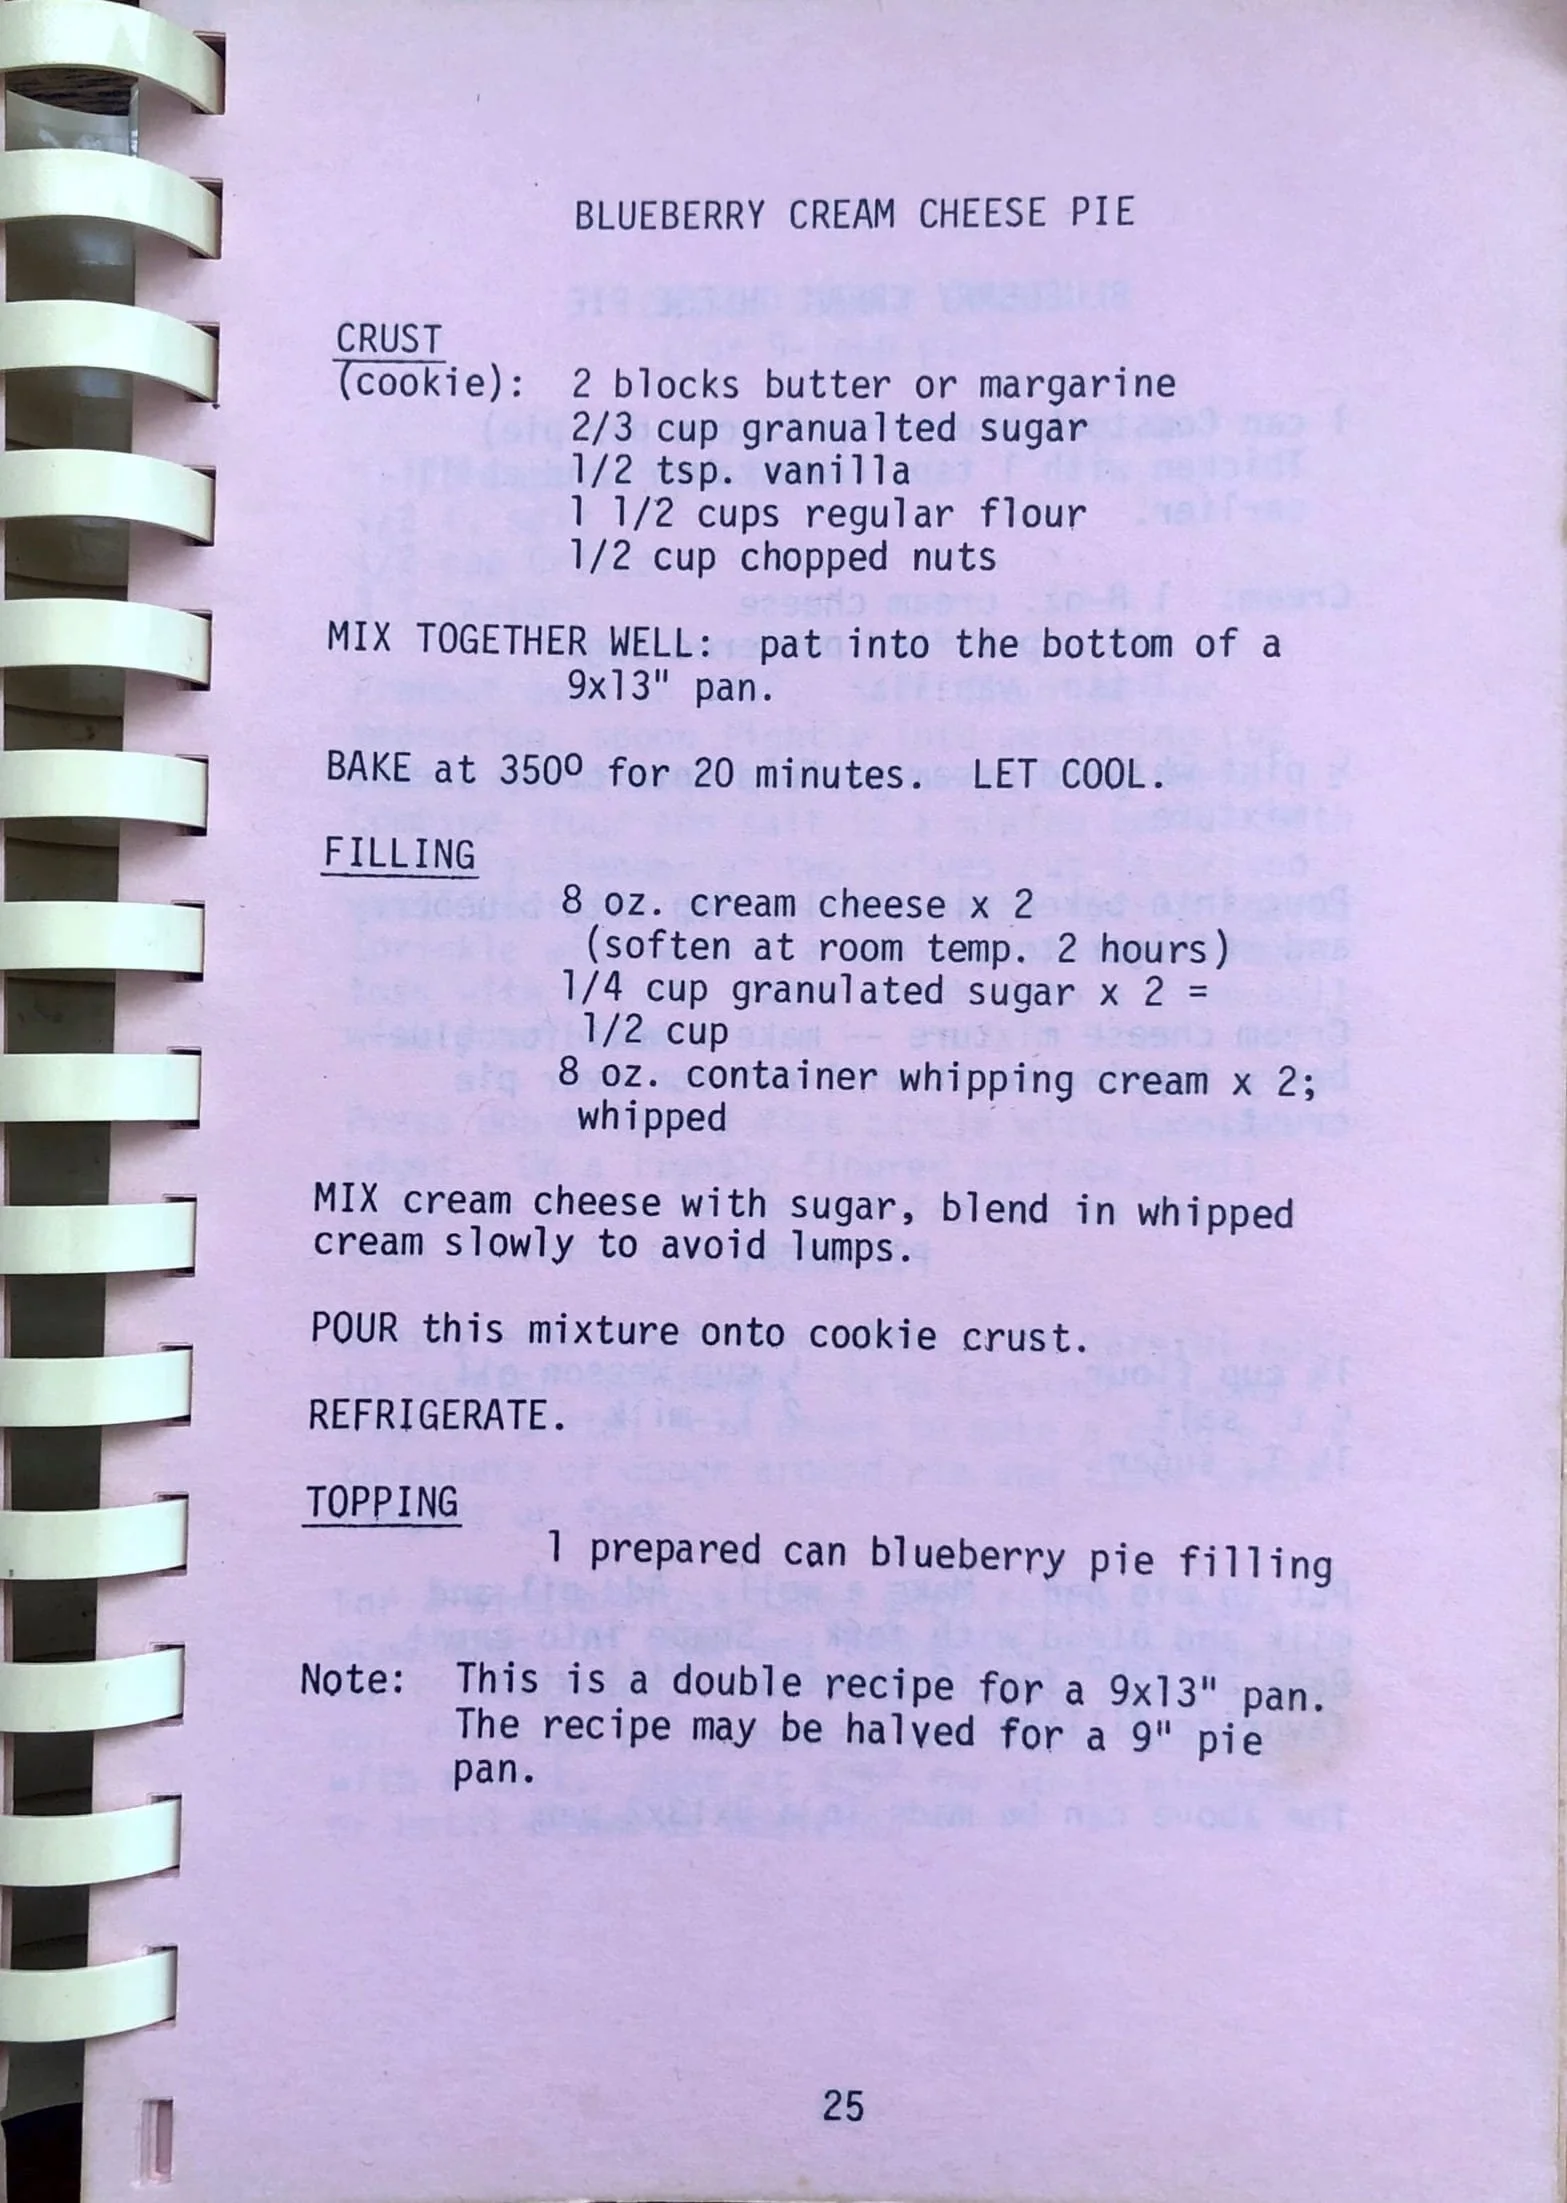 BLUEBERRY CREAM CHEESE PIE
CRUST
(cookie): 2 blocks butter or margarine
2/3 cup granualted sugar
1/2 tsp. vanilla
1 1/2 cups regular flour
1/2 cup chopped nuts
MIX TOGETHER WELL: pat into the bottom of a
9x13" pan.
BAKE at 350º for 20 minutes. LET COOL.
FILLING
8 oz. cream cheese x 2
(soften at room temp. 2 hours)
1/4 cup granulated sugar x 2 =
1/2 cup
8 oz. container whipping cream x 2;
whipped
MIX cream cheese with sugar, blend in whipped
cream slowly to avoid lumps.
POUR this mixture onto cookie crust.
REFRIGERATE.
TOPPING
1 prepared can blueberry pie filling
Note: This is a double recipe for a 9x13" pan.
The recipe may be halved for a 9" pie
pan.
25